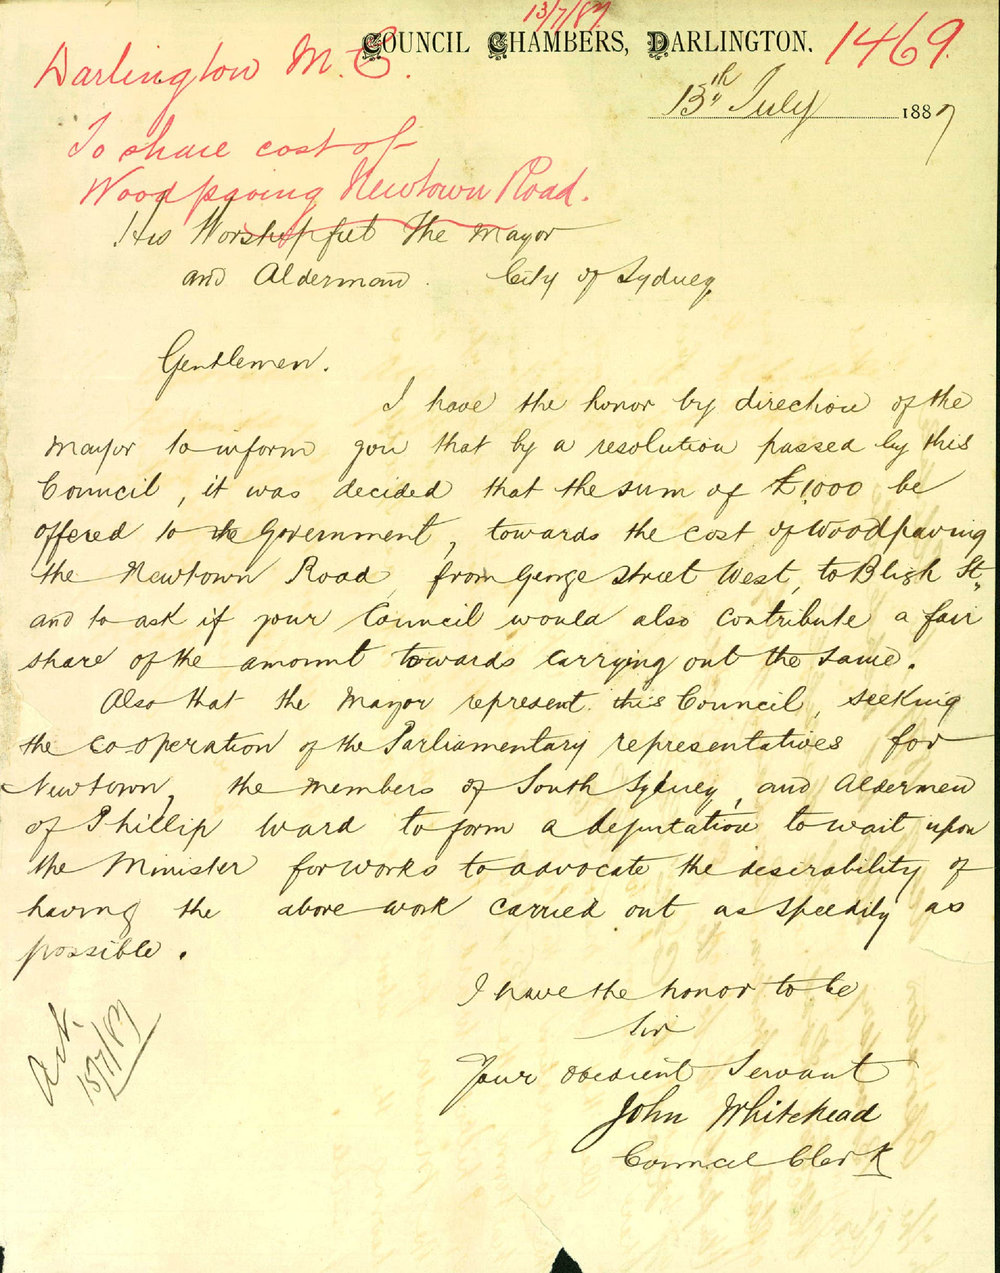 13/7/87.
COUNCIL CHAMBERS, DARLINGTON. 1469.
Darlington M. C.
13th July 1887
To share cost of
Woodpaving Newtown Road.
His Worshipful The Mayor
and Alderman. City of Sydney,
Gentlemen.
I have the honor by direction of the
Mayor to inform you that by a resolution passed by this
Council, it was decided that the sum of £1000 be
offered to the Government, towards the cost of Woodpaving
the Newtown Road, from George Street West, to Bligh St.,
and to ask if your Council would also contribute a fair
share of the amount towards carrying out the same.
Also that the Mayor represent this Council, seeking
the co-operation of the Parliamentary representatives for
Newtown, the members of South Sydney, and Aldermen
of Phillip Ward to form a deputation to wait upon
the Minister for works to advocate the desirability of
having the above work carried out as speedily as
possible.
I have the honor to be
Sir
Your obedient Servant
John Whitehead
Council Clerk
15/7/87